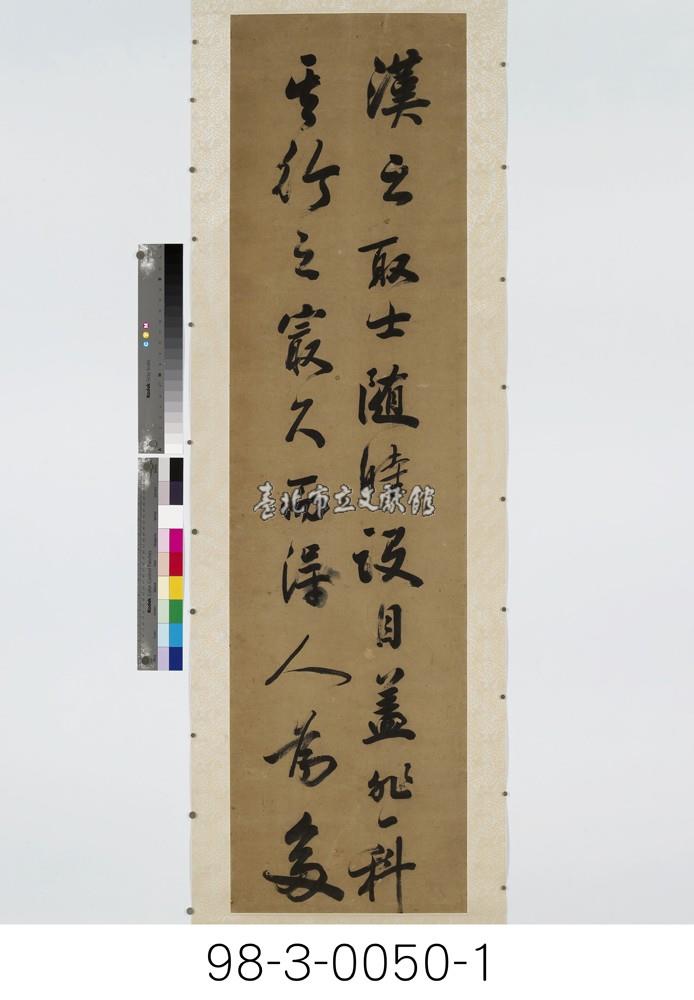 漢之取士随時設目蓋非一科
其行之㝡久而得人為多
臺北市立文獻館
98-3-0050-1